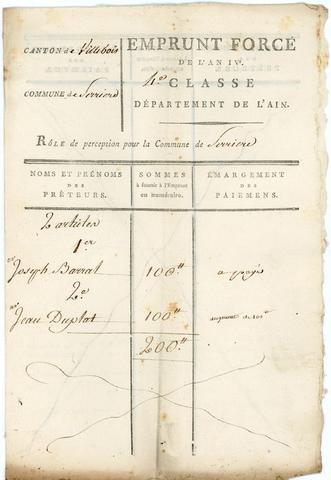 CANTON de Villebois
COMMUNE de Serriere
EMPRUNT FORCÉ
DE L'AN IVe.
4e CLASSE
DÉPARTEMENT DE L'AIN.
RÔLE de perception pour la Commune de Serriere
NOMS ET PRÉNOMS
DES
PRÊTEURS.
SOMMES
à fournir à l'Emprunt
en numéraire.
ÉMARGEMENT
DES
PAIEMENS.
2 articles
1er
Joseph Barrat 100tt a payé
2e
Jean Duplat 100tt
200tt